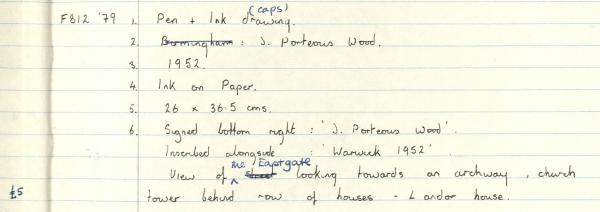 (caps)
F812 '79 1. Pen + Ink drawing.
2. Birmingham : J. Porteous Wood.
3. 1952.
4. Ink on Paper.
5. 26 x 36.5 cms.
6. Signed bottom right : 'J. Porteous Wood'.
Inscribed alongside : 'Warwick 1952'
View of the Eastgate street looking towards an archway, church
£5 tower behind row of houses - Landor house.